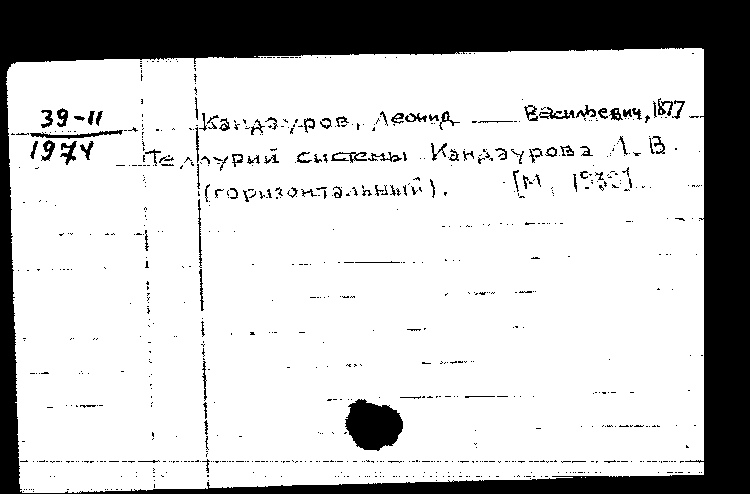 39-11
1974
Кандауров, Леонид Васильевич, 1877
Теллурий системы Кандаурова Л. В.
(горизонтальный). [М,